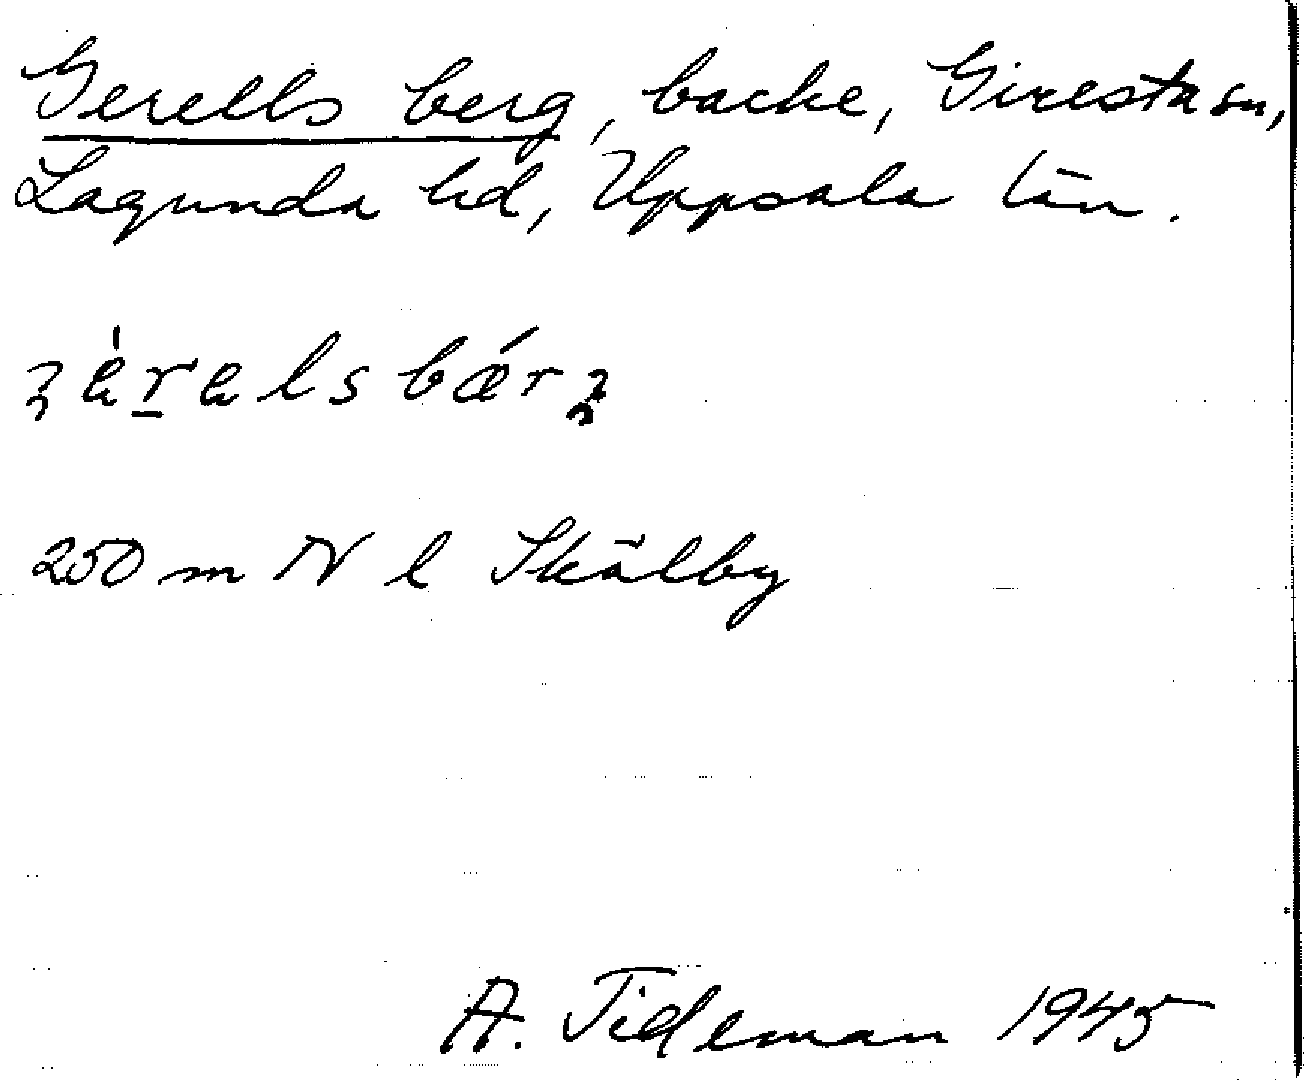 Gerells berg, backe, Giresta sn,
Lagunda hd, Uppsala län.
250 m N l Skälby
A. Tideman 1945